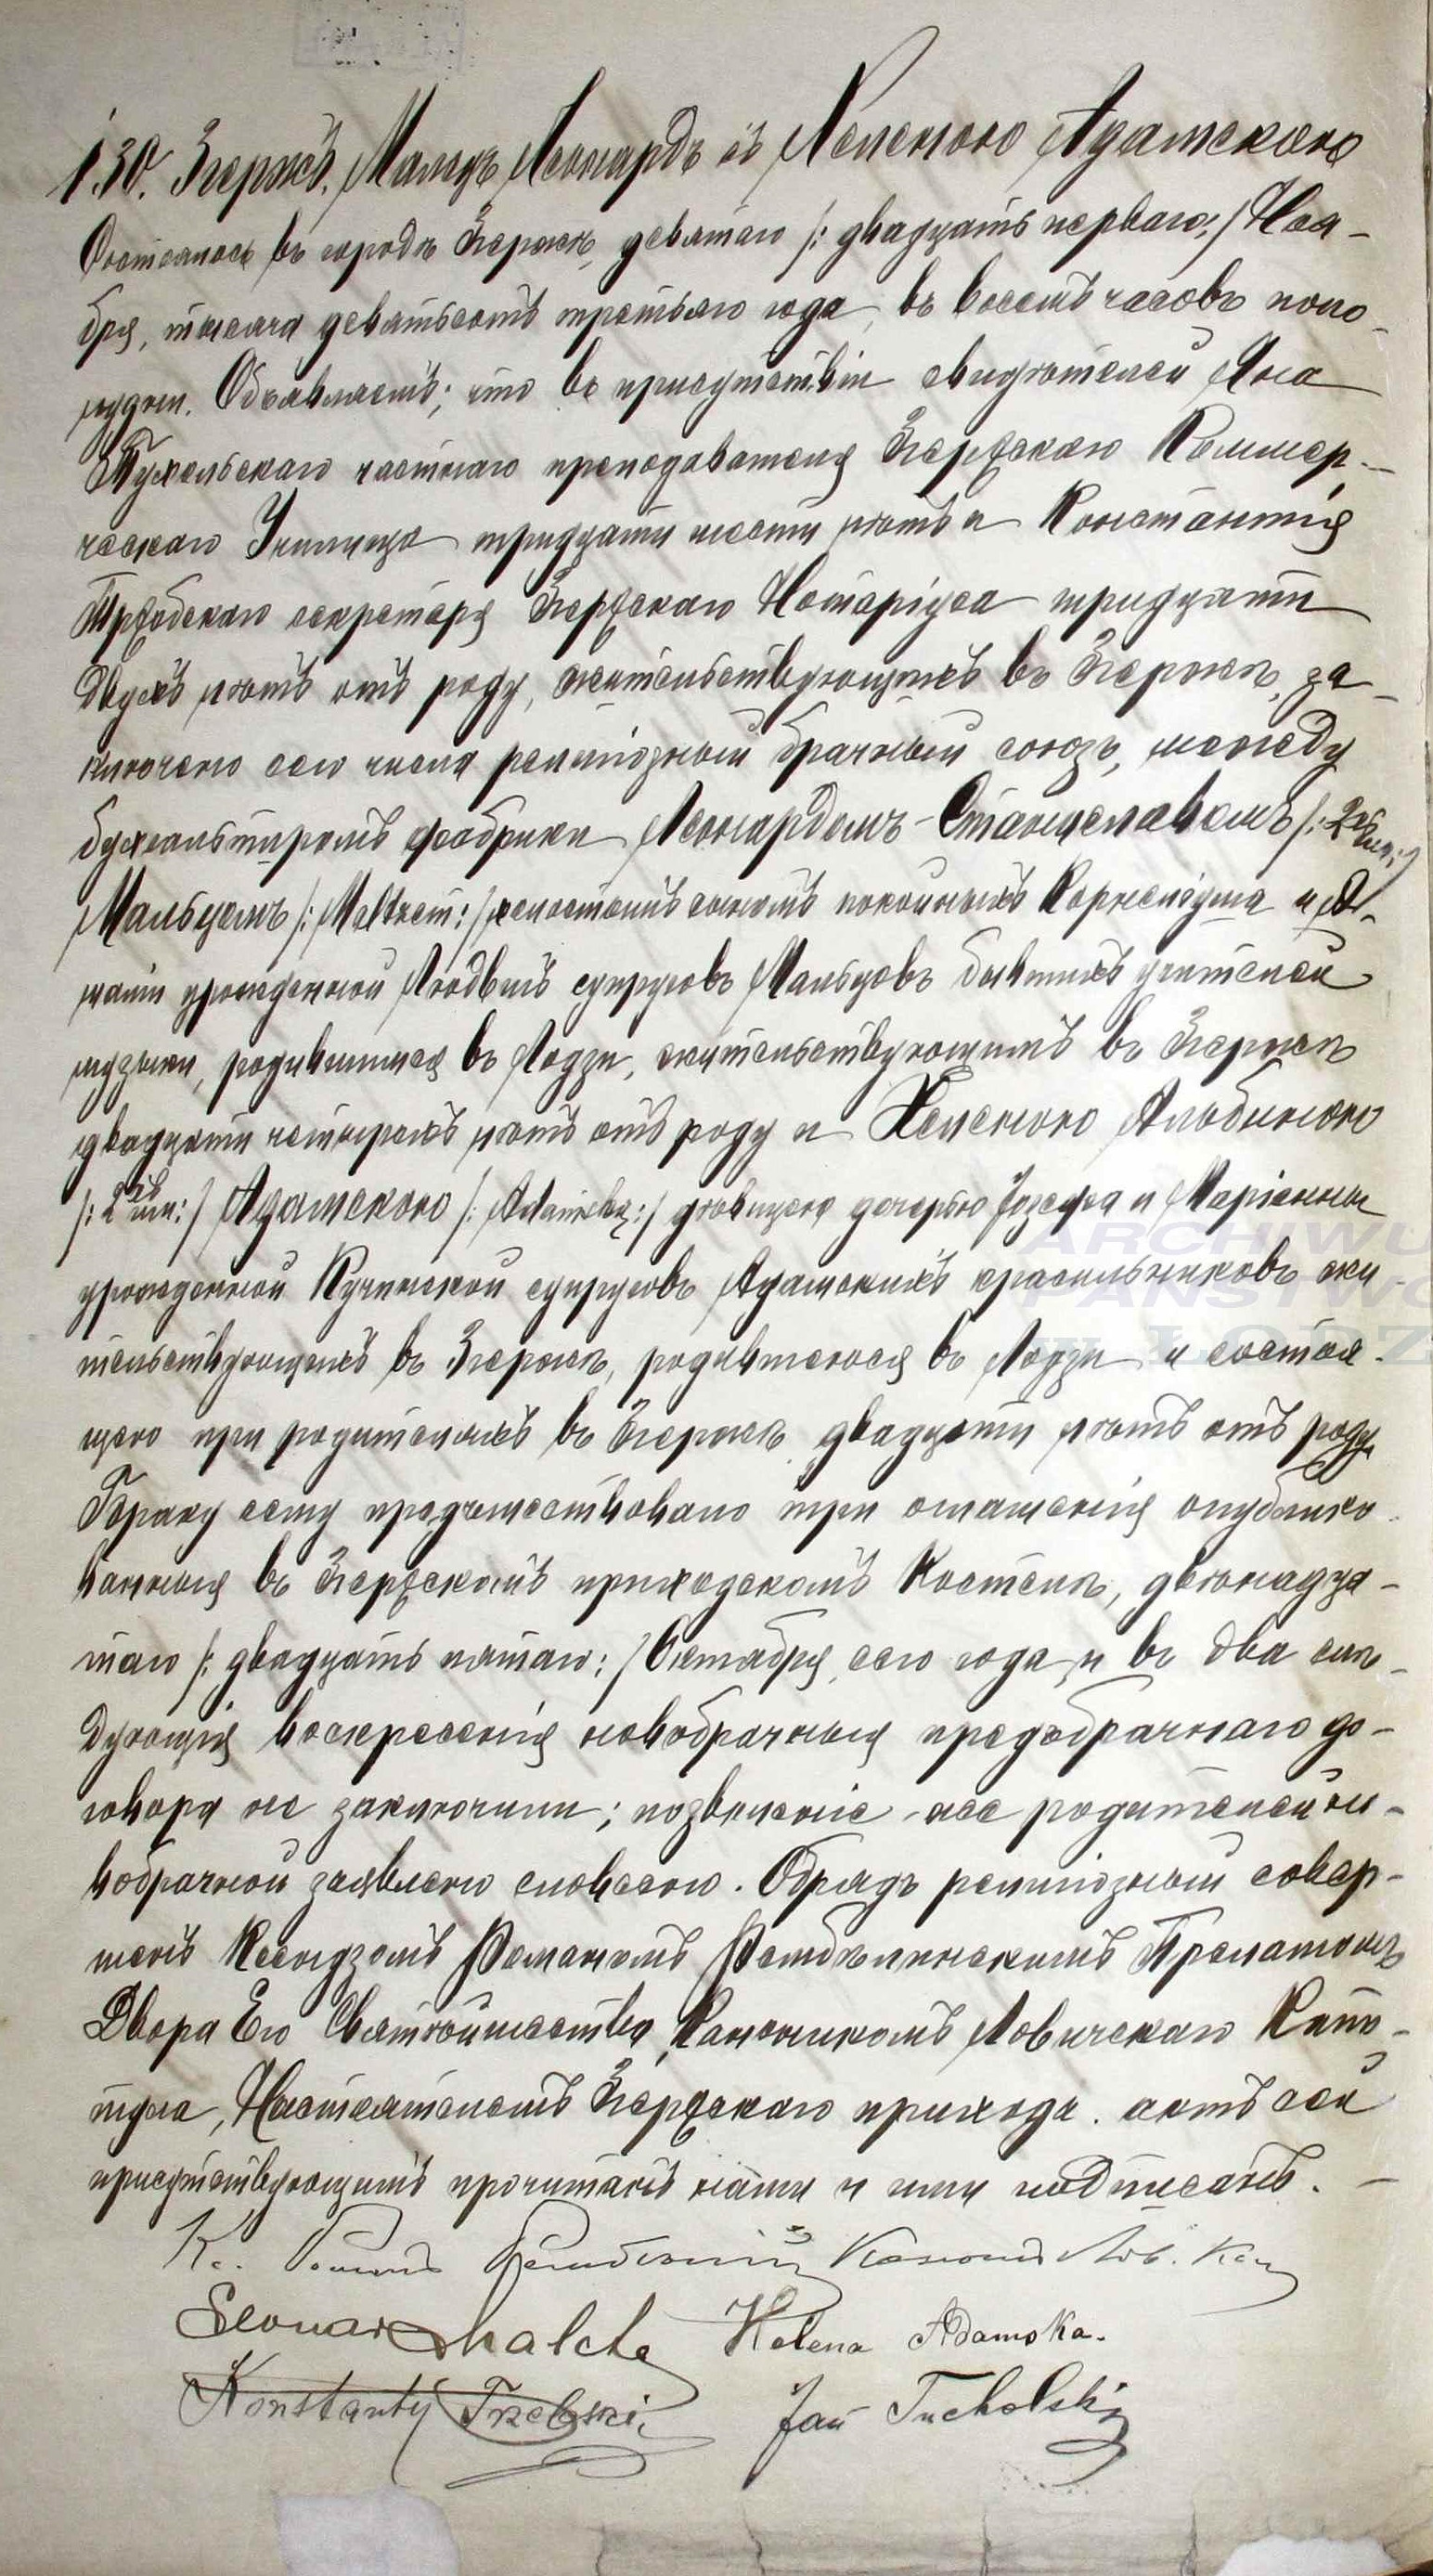 130. Згержъ. Мальцъ Леонардъ съ Хеленою Адамскою
Состоялось въ городѣ Згержѣ, девятаго /: двадцать перваго:/ Ноя-
бря, тысяча девятьсотъ третьяго года, въ восемь часовъ попо-
лудни. Объявляемъ; что въ присутствіи свидѣтелей Яна
Тухольскаго частнаго преподавателя Згерѫскаго Коммер-
ческаго Училища тридцати шести лѣтъ и Константія
Трѫбскаго секретаря Згерѫскаго Нотаріуса тридцати
двухъ лѣтъ отъ роду, жительствующихъ въ Згержѣ, за-
ключено сего числа религіозный брачный союзъ, между
бухгальтиромъ фабрики Леонардомъ-Станиславомъ /: 2хъ им.:/
Мальцемъ /: :/ холостымъ сыномъ покойныхъ Корнеліуша и А-
мати урожденной Людвигъ супруговъ Мальцовъ бывшихъ учителей
музыки, родившимся въ Лодзи, жительствующимъ въ Згержѣ
двадцати четырехъ лѣтъ отъ роду и Хеленою Альбиною
/: 2хъ им:/ Адамскою /: Adamską:/ дѣвицею дочерью Іозефа и Маріанны
урожденной Кучинской супруговъ Адамскихъ красильниковъ жи-
тельствующихъ въ Згержѣ, родившеюся въ Лодзи и состоя-
щею при родителяхъ въ Згержѣ двадцати лѣтъ отъ роду
Браку сему предшествовало три оглашенія опублико-
ванныя въ Згерѫскомъ приходскомъ Костелѣ, двѣнадца-
таго /: двадцать пятаго:/ Октября, сего года и въ два слѣ-
дующія воскресенія новобрачныя предбрачнаго до-
говора не заключили; позволеніе же родителей но-
вобрачной заявлено словесно. Обрядъ религіозный совер-
шенъ Ксендзомъ Романомъ Рембѣлинскимъ Прелатомъ
Двора Его Святѣйшества, Каноникомъ Ловичскаго Капи-
тула, Настоятелемъ Згерѫскаго прихода. актъ сей
присутствующимъ прочитанъ нами и ими подписанъ. –
Кс. Романъ Рембѣлинскій Каноникъ Лов. Кап
Leonard Malc Helena Adamska.
Konstanty Trzebski Jan Tucholski
ARCHIWU
PAŃSTWO
W ŁODZ